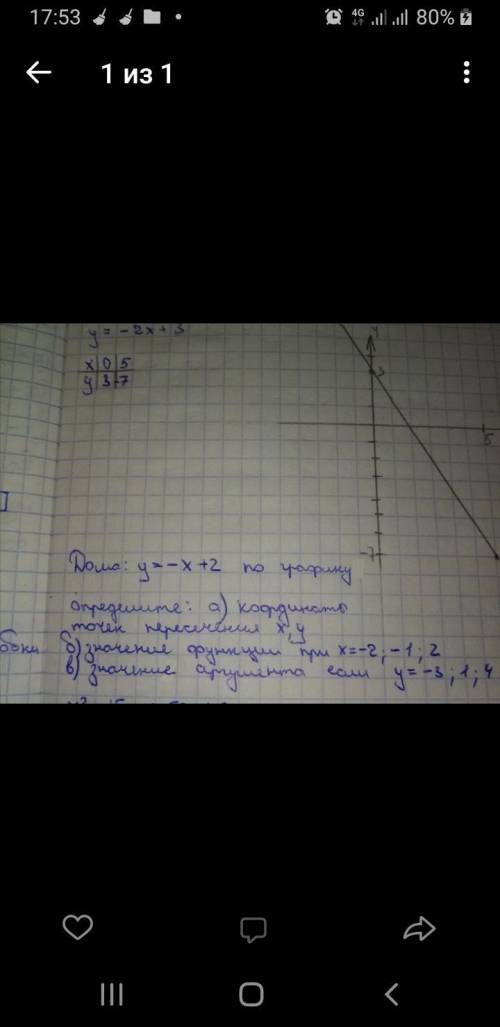 17:53 4G 80%
1 из 1
y = -2x + 3
x 0 5
y 3 -7
y
3
5
-7
]
Дома: y = -x + 2 по графику
определите: а) координаты
точек пересечения x, y
б) значение функции при x = -2; -1; 2
в) значение аргумента если y = -3; 1; 4